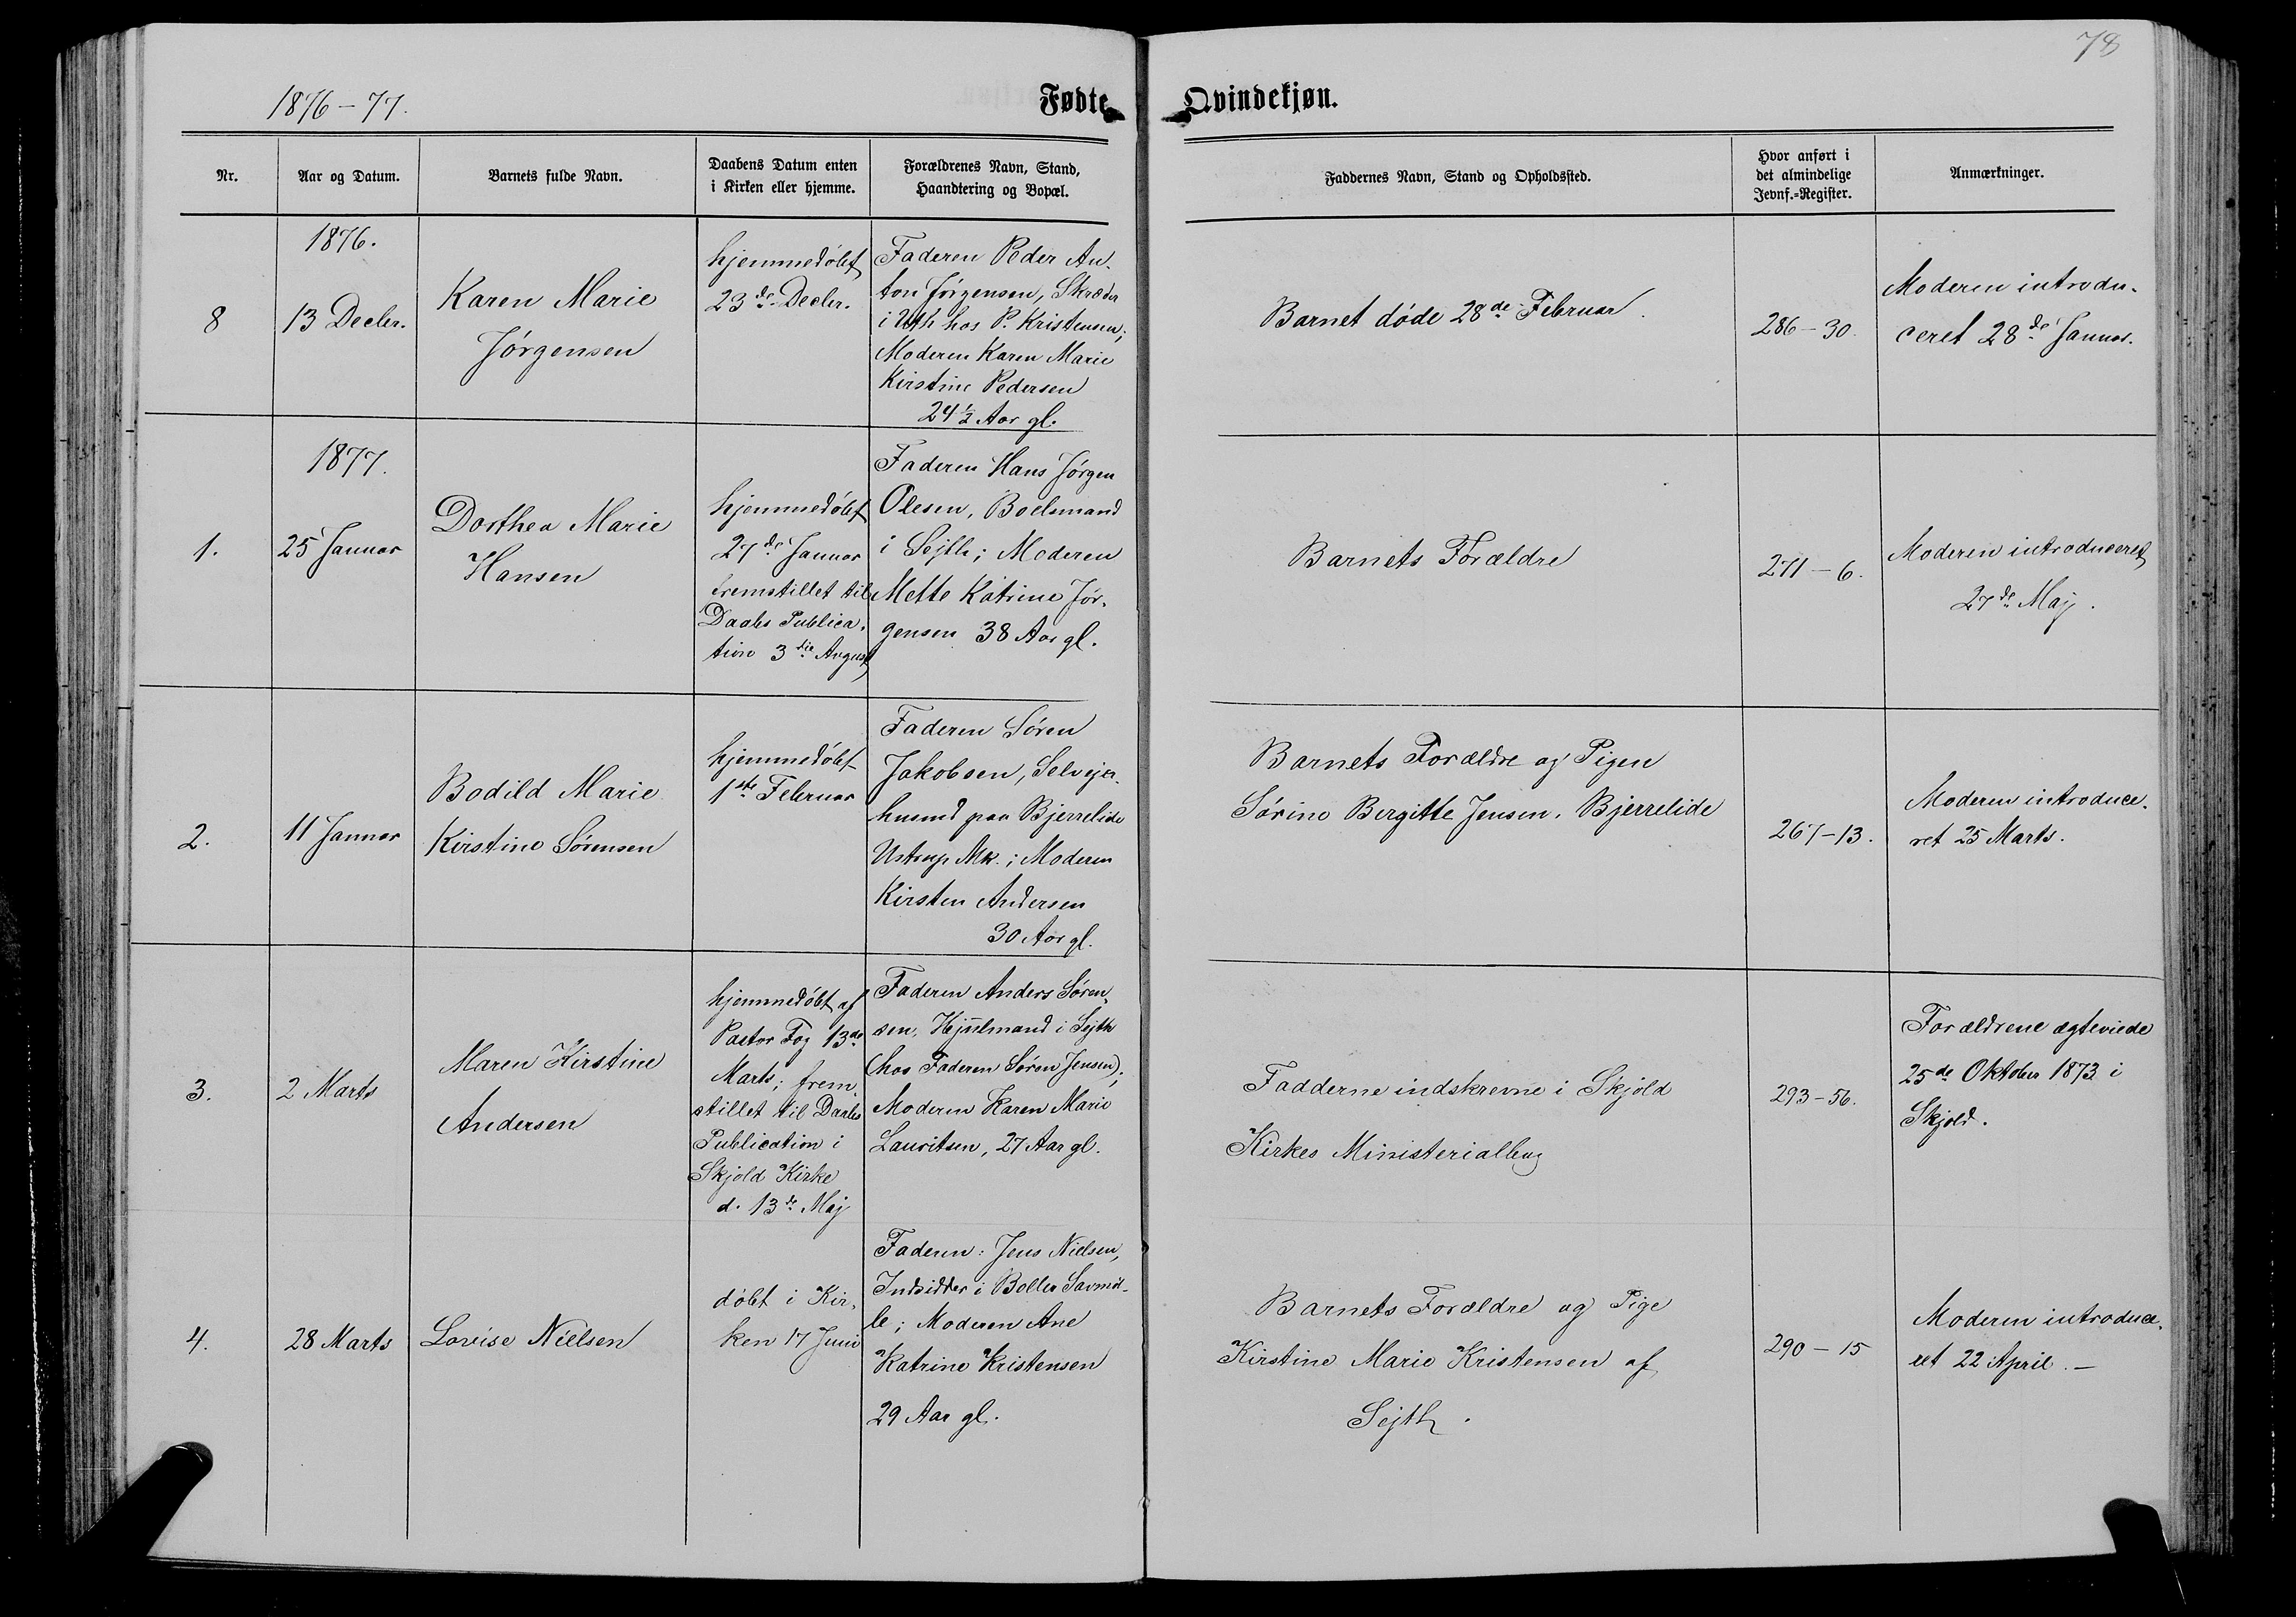 78
1876-77.
Fødte Qvindekjøn.
Nr.
Aar og Datum.
Barnets fulde Navn.
Daabens Datum enten
i Kirken eller hjemme.
Forældrenes Navn, Stand,
Haandtering og Bopæl.
Faddernes Navn, Stand og Opholdssted.
Hvor anført i
det almindelige
Jevnf.=Register.
Anmærkninger.
1876.
8
13 Decbr.
Karen Marie
Jørgensen
hjemmedøbt
23de Decbr.
Faderen Peder An-
ton Jørgensen, Skræder
i Uth hos P. Kristensen;
Moderen Karen Marie
Kirstine Pedersen
24 1/2 Aar gl.
Barnet døde 28de Februar.
286-30.
Moderen introdu-
ceret 28de Januar.
1877.
1.
25 Januar
Dorthea Marie
Hansen
hjemmedøbt
27de Januar
fremstillet til
Daabs Publica-
tion 3die August
Faderen Hans Jørgen
Olesen, Boelsmand
i Sejth; Moderen
Mette Katrine Jør-
gensen 38 Aar gl.
Barnets Forældre
271-6.
Moderen introduceret
27de Maj.
2.
11 Januar
Bodild Marie
Kirstine Sørensen
hjemmedøbt
1ste Februar
Faderen Søren
Jakobsen, Selvejer-
husmd paa Bjerrelide
Ustrup Mk.; Moderen
Kirsten Andersen
30 Aar gl.
Barnets Forældre og Pigen
Sørine Bergitte Jensen, Bjerrelide
267-13.
Moderen introduce-
ret 25 Marts.
3.
2 Marts
Maren Kirstine
Andersen
hjemmedøbt af
Pastor Fog 13de
Marts; frem-
stillet til Daabs
Publication i
Skjold Kirke
d. 13de Maj
Faderen Anders Søren-
sen, Hjulmand i Sejth
(hos Faderen Søren Jensen);
Moderen Karen Marie
Lauritsen, 27 Aar gl.
Fadderne indskrevne i Skjold
Kirkes Ministerialbog
293-56.
Forældrene ægteviede
25de Oktober 1873 i
Skjold.
4.
28 Marts
Lovise Nielsen
døbt i Kir-
ken 17 Juni
Faderen: Jens Nielsen,
Indsidder i Boller Savmøl-
le; Moderen Ane
Katrine Kristensen
29 Aar gl.
Barnets Forældre og Pige
Kirstine Marie Kristensen af
Sejth.
290-15
Moderen introduce-
ret 22 April. -